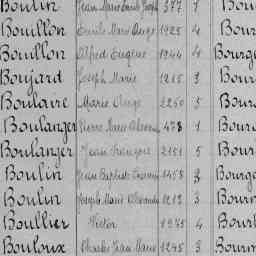 Boulin Jean Marie Emile Joseph 377 1 Bou
Bouillon Emile Marie Ange 1925 4 Bour
Bouillon Alfred Eugène 1944 4 Bourg
Boujard Joseph Marie 1215 3 Bour
Boulaire Marie Ange 2250 5 Bour
Boulanger Pierre Marie 478 1 Bour
Boulanger Jean François 2151 5 Bour
Boulin Jean Baptiste 1458 3 Bourg
Boulin Joseph Marie Alexandre 1212 3 Bourn
Boullier Victor 1975 4 Bour
Bouloux Charles Jean Marie 1245 3 Bourn